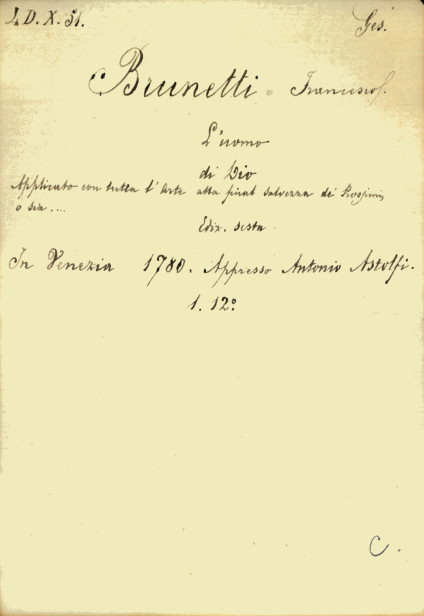 1. D. X. 51.
Ges.
Brunetti Francesco S.
L'uomo
di Dio
Applicato con tutta l'Arte alla final salvezza de' Prossimi
o sia ....
Ediz. sesta.
In Venezia 1780. Appresso Antonio Astolfi.
1. 12º
C.